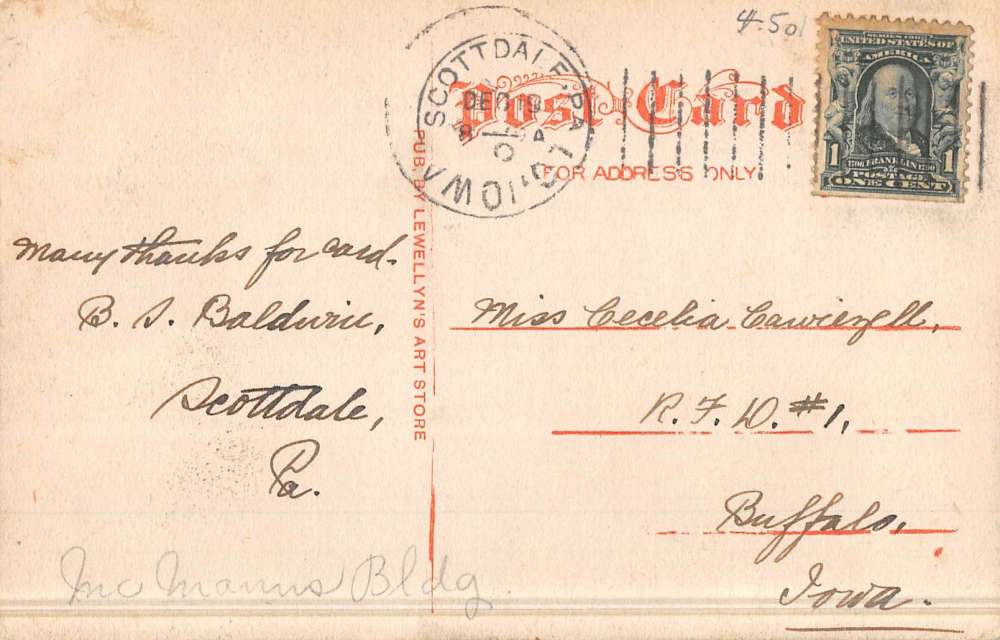 4-50
Post Card
FOR ADDRESS ONLY
SCOTTDALE, PA
DEC 19
8
A
IOWA
SERIES 1902
UNITED STATES OF
AMERICA
1 1
1706 FRANKLIN 1790
POSTAGE
ONE CENT
PUB. BY LEWELLYN'S ART STORE
Many thanks for card.
B. S. Baldwin,
Scottdale,
Pa.
Miss Cecelia
R. F. D. #1,
Buffalo,
Iowa.
Mc Manus Bldg.